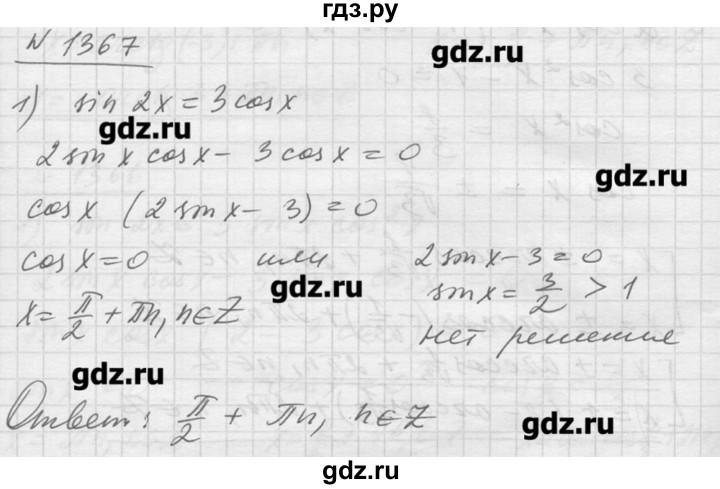 гдз.ру
N 1367
gdz.ru
1) sin 2x = 3 cos x
gdz.ru
2 sin x cos x - 3 cos x = 0
gdz.ru
cos x (2 sin x - 3) = 0
cos x = 0 или 2 sin x - 3 = 0
gdz.ru
sin x = 3/2 > 1
x = π/2 + πn, n∈Z
нет решение
gdz.ru
Ответ: π/2 + πn, n∈Z
gdz.ru
gdz.ru